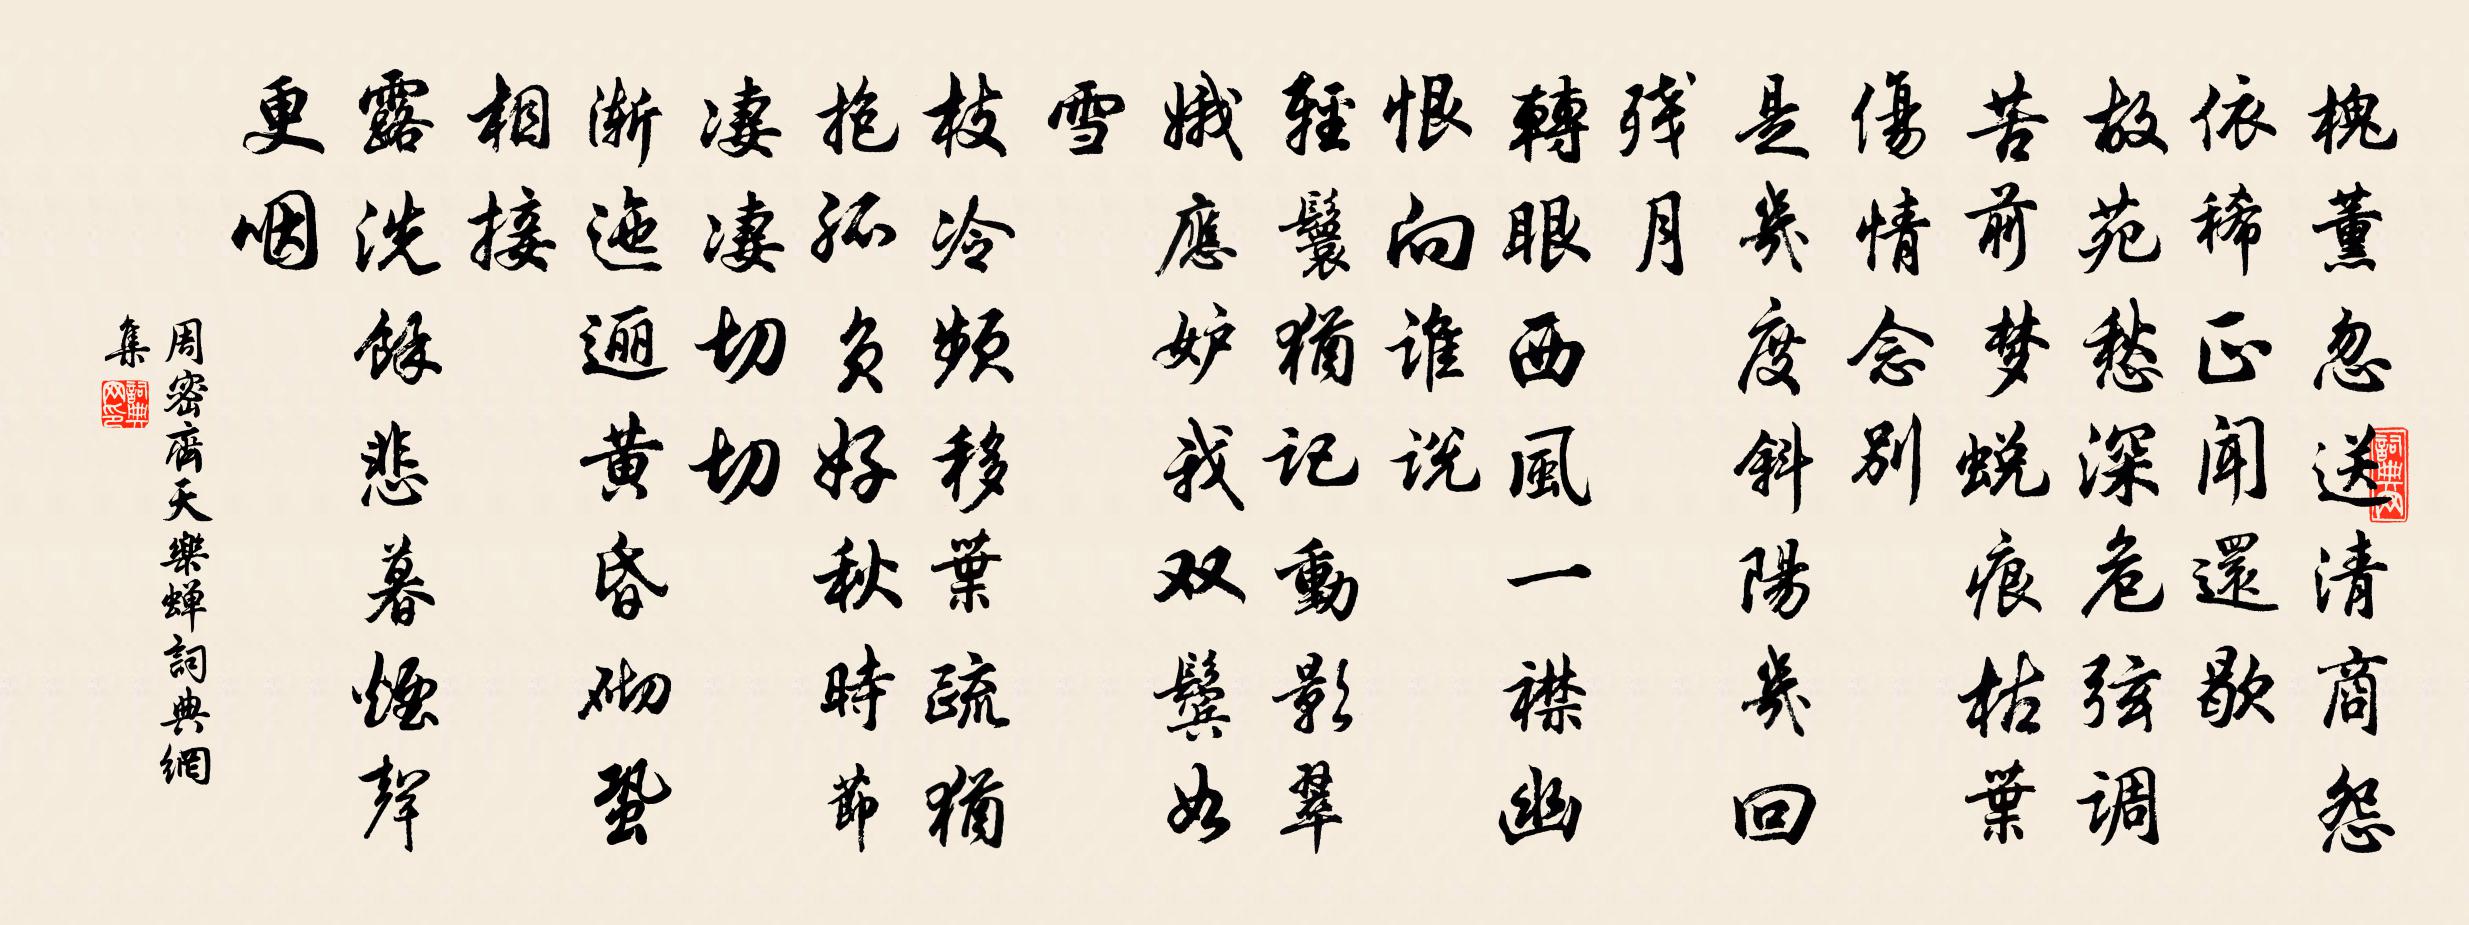 槐薰忽送清商怨
依稀正闻還歇
故苑愁深危弦调
苦前梦蜕痕枯葉
傷情念别
是幾度斜陽幾回
残月
轉眼西風一襟幽
恨向谁说
輕鬟猶记動影翠
娥應妒我双鬓如
雪
枝冷频移葉疏猶
抱孤负好秋時節
凄凄切切
渐迤逦黄昏砌蛩
相接
露洗餘悲暮煙聲
更咽
周密齊天樂蝉詞典網
集
詞典网
詞典网印